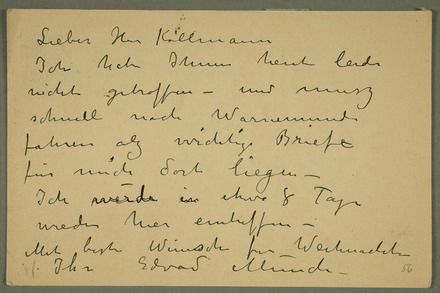 Lieber Herr Kollmann
Ich habe Ihnen heute leider
nicht getroffen – und musz
schnell nach Warnemünde
fahren als wichtige Briefe
für mich dort liegen –
Ich werde in etwa 8 Tage
wieder hier eintreffen –
Mit beste Wünsche für Weihnachten
Ihr Edvard Munch –
56